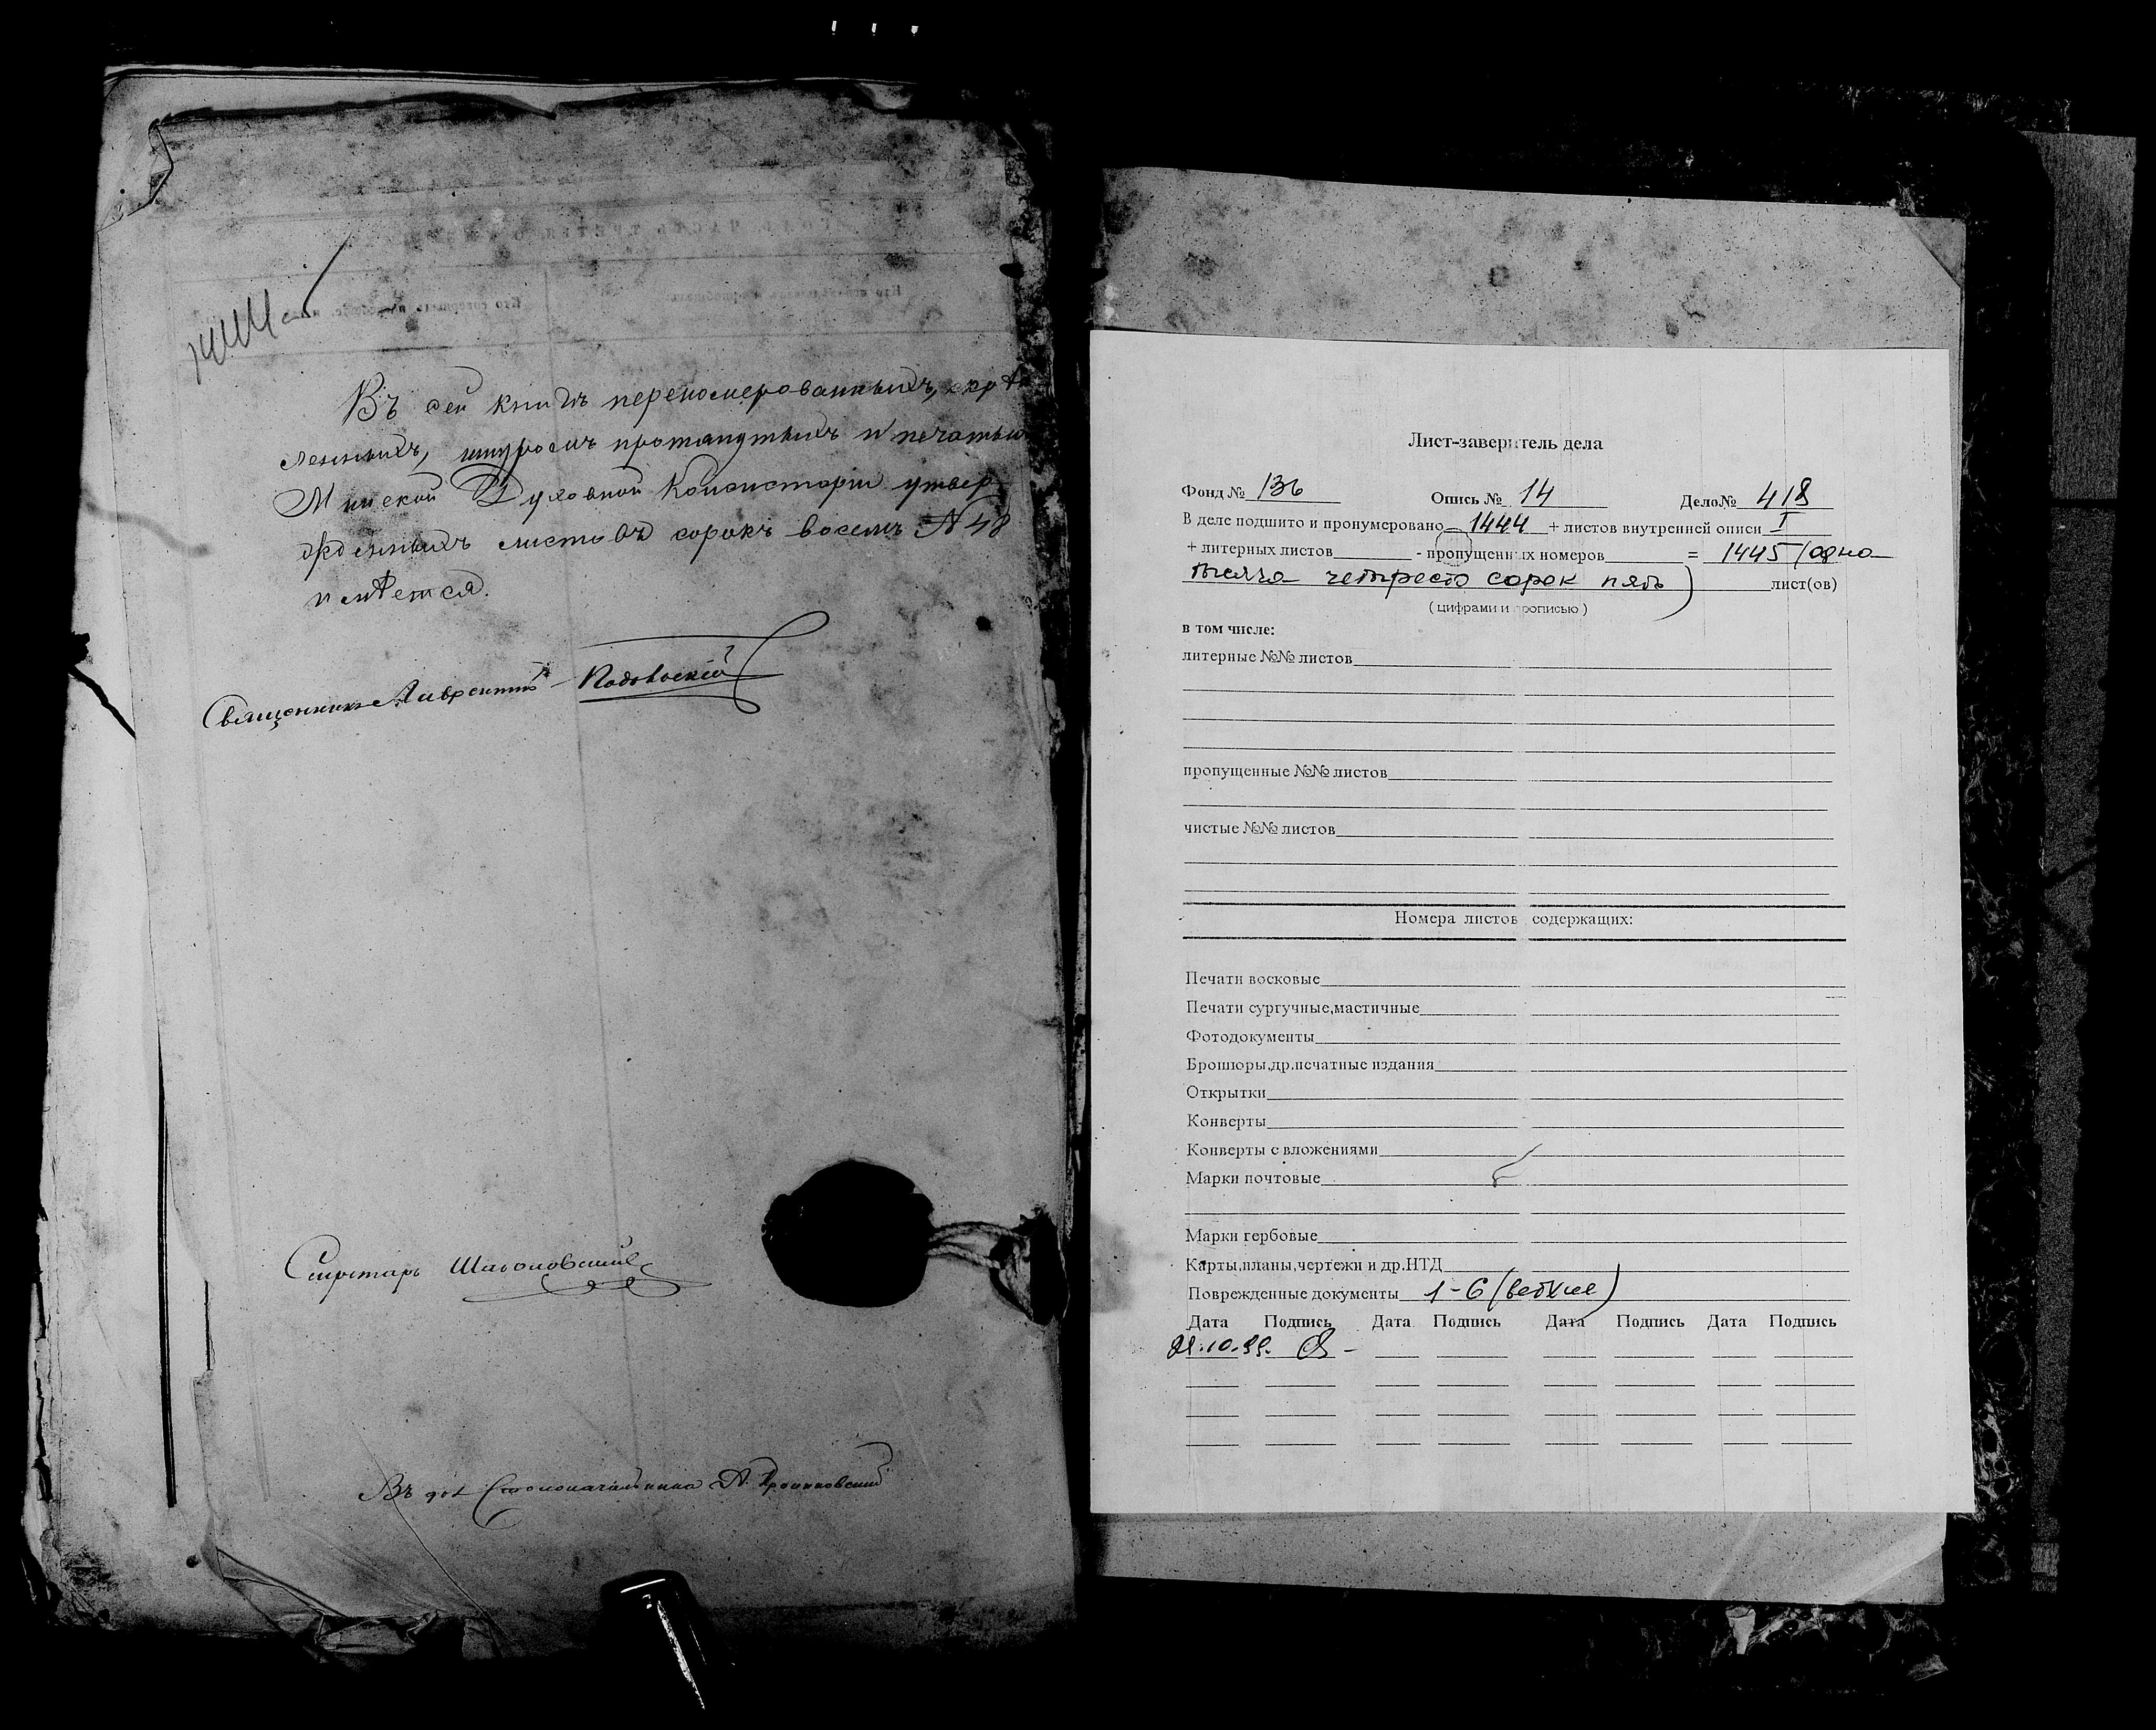 Въ сей книгѣ переномерованныхъ, скрѣп
ленныхъ, шнуромъ протянутыхъ и печатью
Минской Духовной Консисторіи утвер
жденныхъ листовъ сорокъ восемь № 48
имѣется.
Священникъ Лаврентій
Секретарь
Въ дол Столоначальника А.
Лист-заверитель дела
Фонд № 136 Опись № 14 Дело№ 418
В деле подшито и пронумеровано 1444 + листов внутренней описи I
+ литерных листов - пропущенных номеров = 1445 (одна
тысяча четыреста сорок пять) лист(ов)
( цифрами и прописью )
в том числе:
литерные №№ листов
пропущенные №№ листов
чистые №№ листов
Номера листов содержащих:
Печати восковые
Печати сургучные,мастичные
Фотодокументы
Брошюры,др.печатные издания
Открытки
Конверты
Конверты с вложениями
Марки почтовые
Марки гербовые
Карты,планы,чертежи и др.НТД
Поврежденные документы 1-6 (ветхие)
Дата Подпись Дата Подпись Дата Подпись Дата Подпись